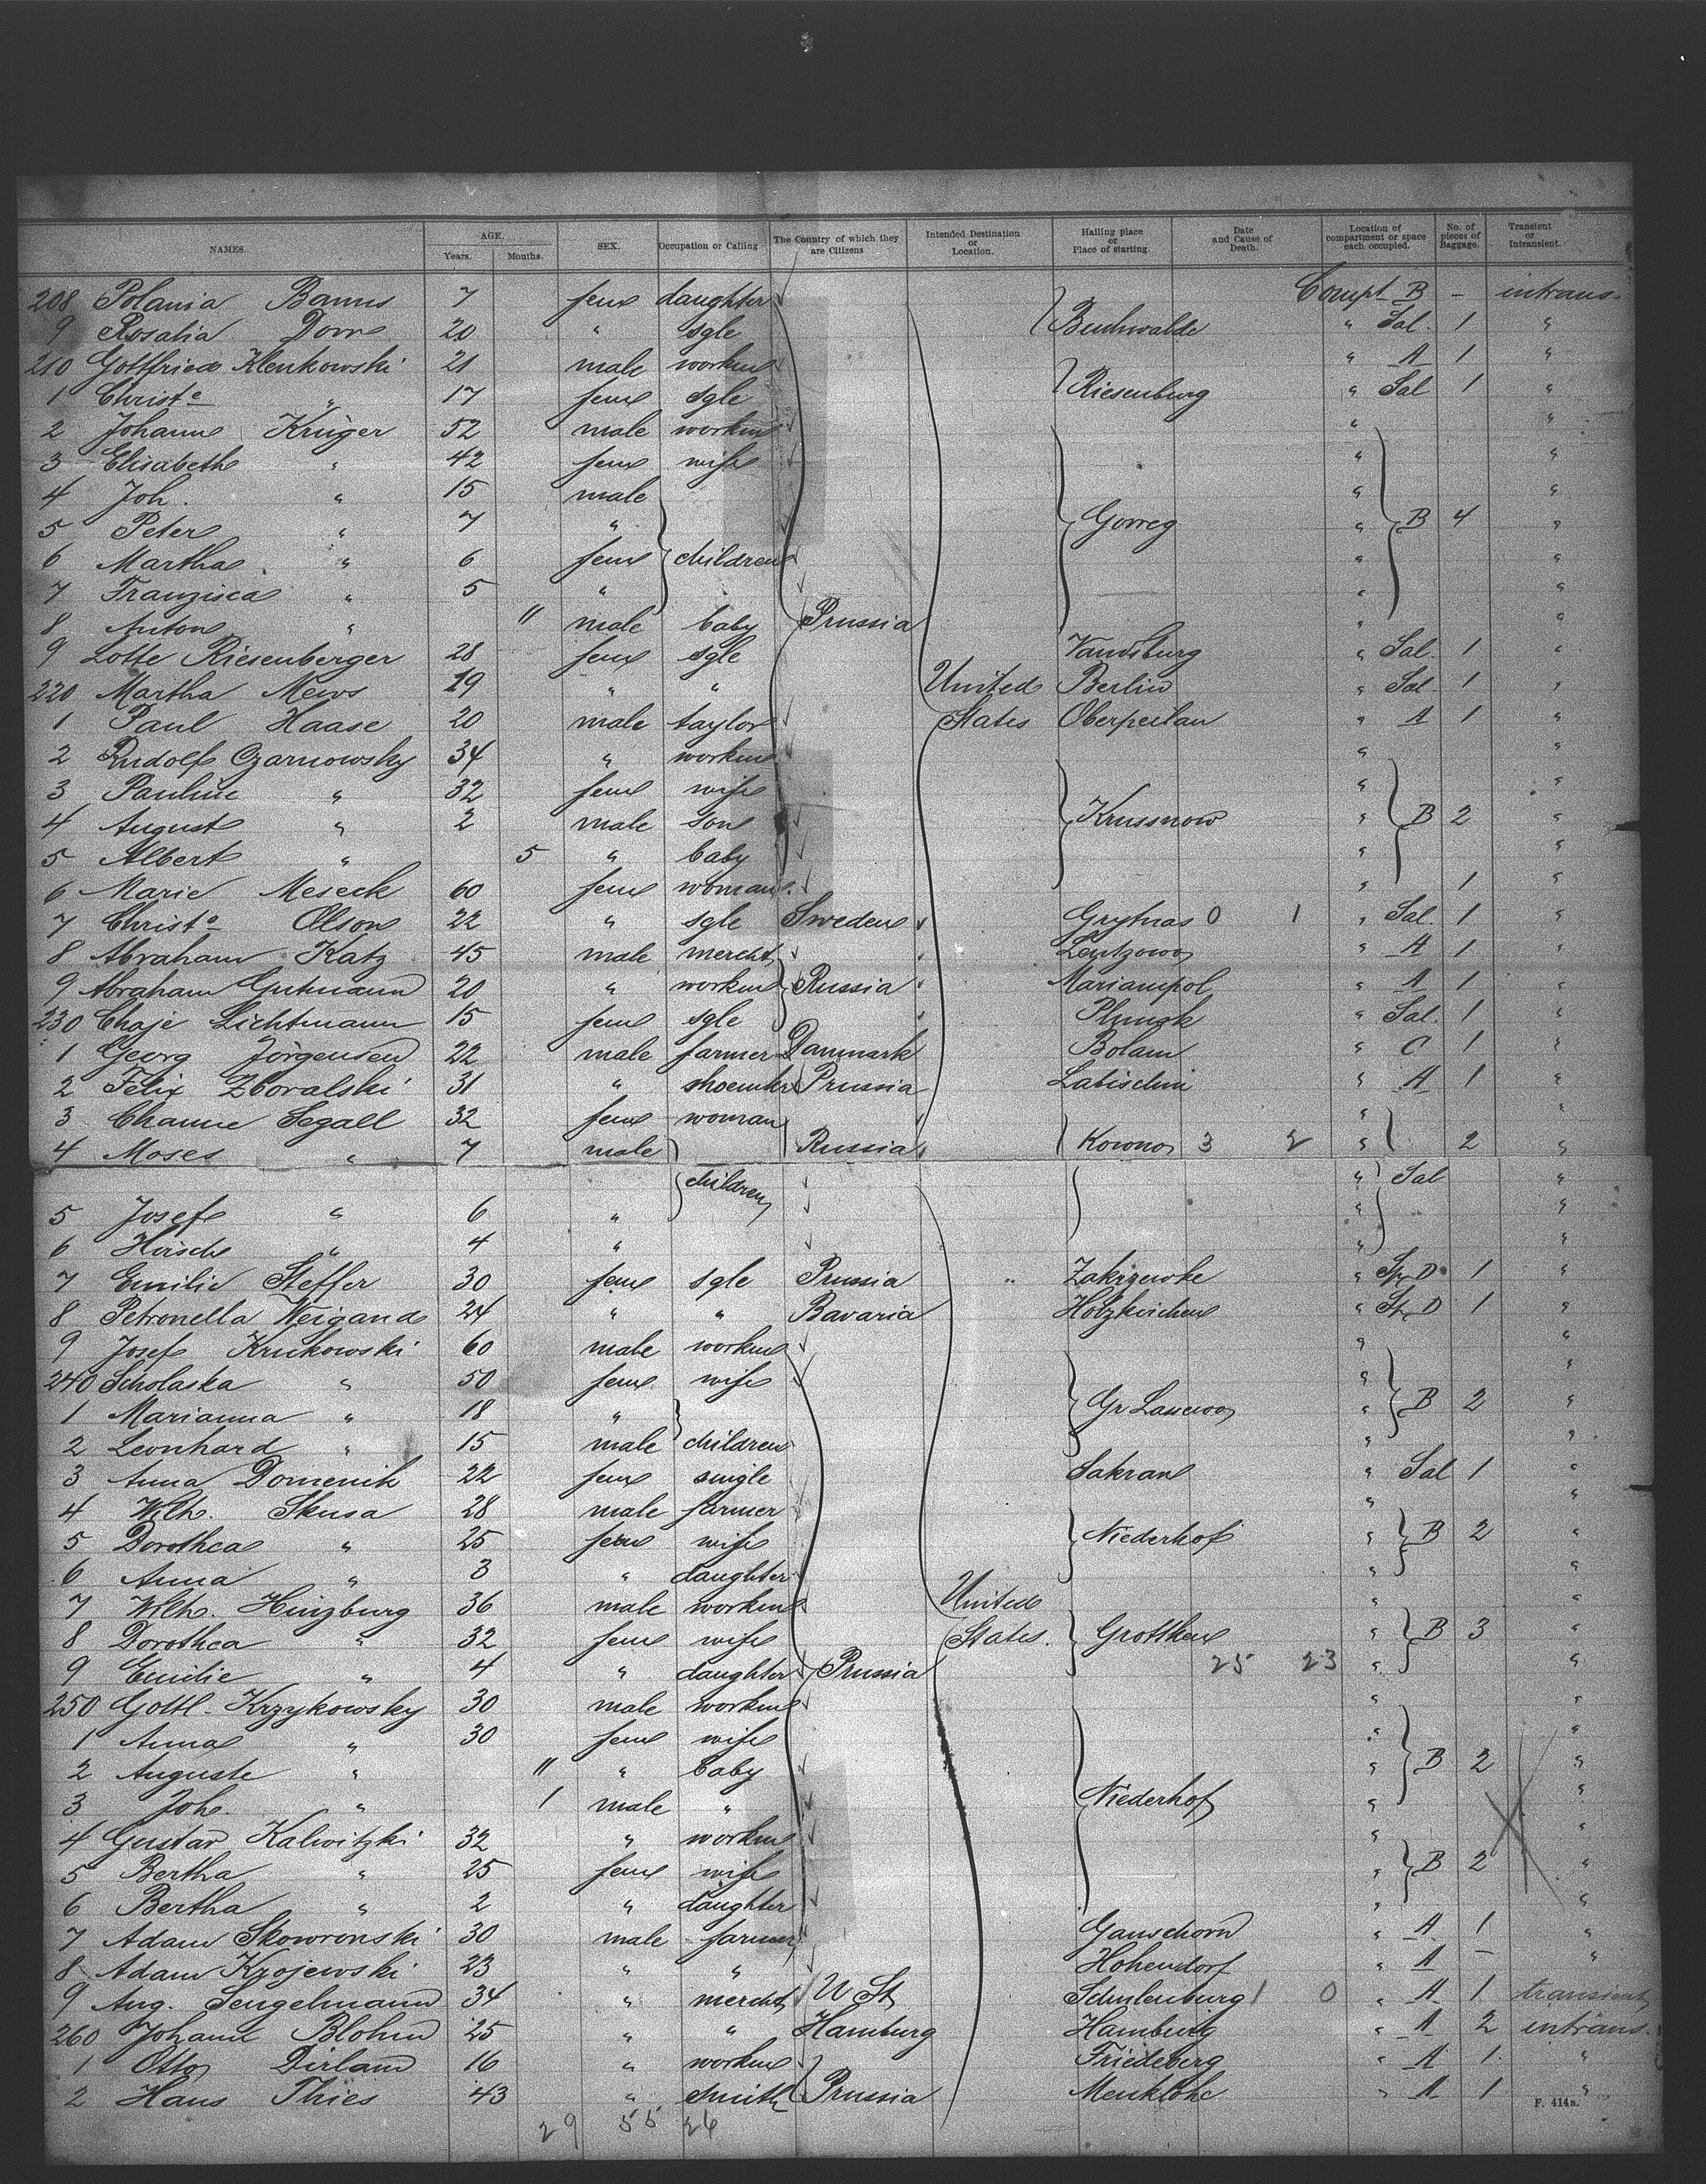 NAMES. AGE. Years. Months. SEX. Occupation or Calling The Country of which they are Citizens Intended Destination or Location. Hailing place or Place of starting. Date and Cause of Death. Location of compartment or space each occupied. No. of pieces of Baggage. Transient or Intransient.
208 Polania 7 fem daughter Compt B - intrans.
9 Rosalia 20 " sgle Buchwalde " Sal. 1 "
210 Gottfried Klenkowski 21 male workm " A 1 "
1 Christe " 17 fem sgle Riesenburg " Sal 1 "
2 Johann Krüger 52 male workm " "
3 Elisabeth " 42 fem wife " "
4 Joh. " 15 male " "
5 Peter " 7 " " B 4 "
6 Martha " 6 fem children " "
7 Franzisca " 5 " " "
8 Anton " 11 male baby Prussia " "
9 Lotte Riesenberger 28 fem sgle Vandsburg " Sal. 1 "
220 Martha Mews 19 " " United Berlin " Sal 1 "
1 Paul Haase 20 male taylor States Oberpeilau " A 1 "
2 Rudolf Czarnowsky 34 " workm " "
3 Pauline " 32 fem wife " "
4 August " 2 male son Krussnow " B 2 "
5 Albert " 5 " baby " "
6 Marie Meseck 60 fem woman " 1 "
7 Christe Olson 22 " sgle Sweden Grytnas 0 1 " Sal. 1 "
8 Abraham Katz 45 male mercht " A 1 "
9 Abraham Gutmann 20 " workm Russia Mariampol " A 1 "
230 Chaje Lichtmann 15 fem sgle Plungk " Sal. 1 "
1 Georg Jörgensen 22 male farmer Danmark Bolam " C 1 "
2 Felix Zboralski 31 " shoemkr Prussia Labischin " A 1 "
3 Channe Segall 32 fem woman " "
4 Moses " 7 male Russia Kowno 3 2 " 2 "
children " Sal "
5 Josef " 6 " " "
6 Hirsch " 4 " " "
7 Emilie Steffer 30 fem sgle Prussia " Zakrzewke " D 1 "
8 Petronella Weigand 24 " " Bavaria Holzkirchen " D 1 "
9 Josef Krukowski 60 male workm " "
240 Scholaska " 50 fem wife " "
1 Marianna " 18 " " B 2 "
2 Leonhard " 15 male children " "
3 Anna Domenik 22 fem single Sakran " Sal 1 "
4 Wilh. Skusa 28 male farmer " "
5 Dorothea " 25 fem wife Niederhof " B 2 "
6 Anna " 3 " daughter " "
7 Wilh. Hinzburg 36 male workm United " "
8 Dorothea " 32 fem wife States. Grotthen " B 3 "
9 Emilie " 4 " daughter Prussia 25 23 " "
250 Gottl. Krzykowsky 30 male workm " "
1 Anna " 30 fem wife " "
2 Auguste " 11 " baby " B 2 "
3 Joh. " 1 male " Niederhof " "
4 Gustav Kalwitzki 32 " workm " "
5 Bertha " 25 fem wife " B 2 "
6 Bertha " 2 " daughter " "
7 Adam Skowronski 30 male farmer Ganschorn " A 1 "
8 Adam Krojewski 23 " " Hohendorf " A - "
9 Aug. Sengelmann 34 " mercht U St Schulenburg 1 0 " A 1 transient
260 Johann Blohm 25 " " Hamburg Hamburg " A 2 intrans.
1 Otto Dirland 16 " workm Friedeberg " A 1 "
2 Hans Thies 43 " smith Prussia Menklohe " A 1 "
F. 414a.
29 55 26